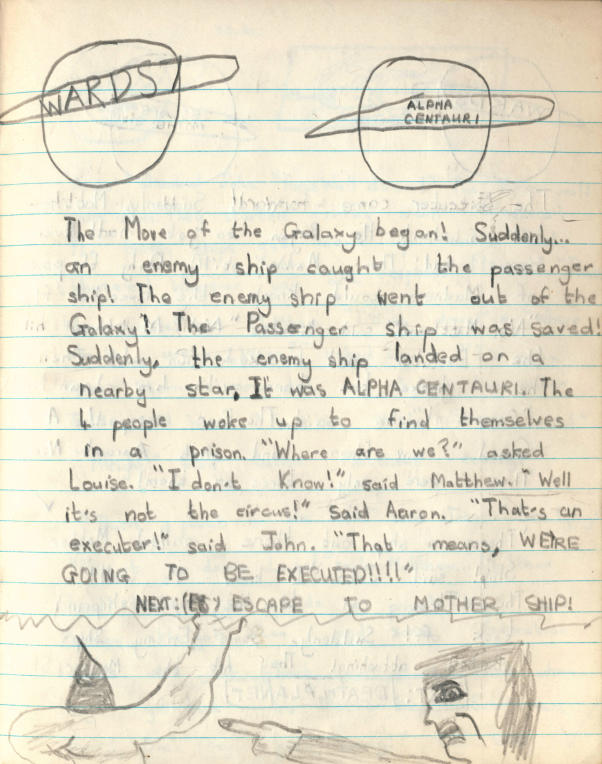 WARDS 7
ALPHA
CENTAURI
The Move of the Galaxy began! Suddenly...
an enemy ship caught the passenger
ship! The enemy ship went out of the
Galaxy! The Passenger ship was saved!
Suddenly, the enemy ship landed on a
nearby star, It was ALPHA CENTAURI. The
4 people woke up to find themselves
in a prison. "Where are we?" asked
Louise. "I don't Know!" said Matthew. "Well
it's not the circus!" said Aaron. "That's an
executer!" said John. "That means, WE'RE
GOING TO BE EXECUTED!!!!"
NEXT: ESCAPE TO MOTHER SHIP!